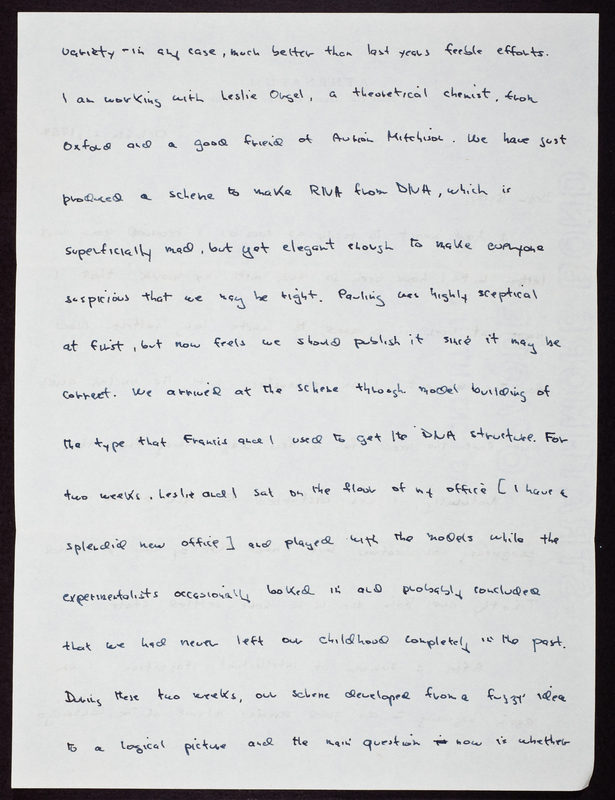 variety - in any case, much better than last years feeble efforts.
I am working with Leslie Orgel, a theoretical chemist, from
Oxford and a good friend of Avrion Mitchison. We have just
produced a scheme to make RNA from DNA, which is
superficially mad, but yet elegant enough to make everyone
suspicious that we may be right. Pauling was highly sceptical
at first, but now feels we should publish it since it may be
correct. We arrived at the scheme through model building of
the type that Francis and I used to get the DNA structure. For
two weeks, Leslie and I sat on the floor of my office [I have a
splendid new office] and played with the models while the
experimentalists occasionally looked in and probably concluded
that we had never left our childhood completely in the past.
During these two weeks, our scheme developed from a fuzzy idea
to a logical picture and the main question now is whether